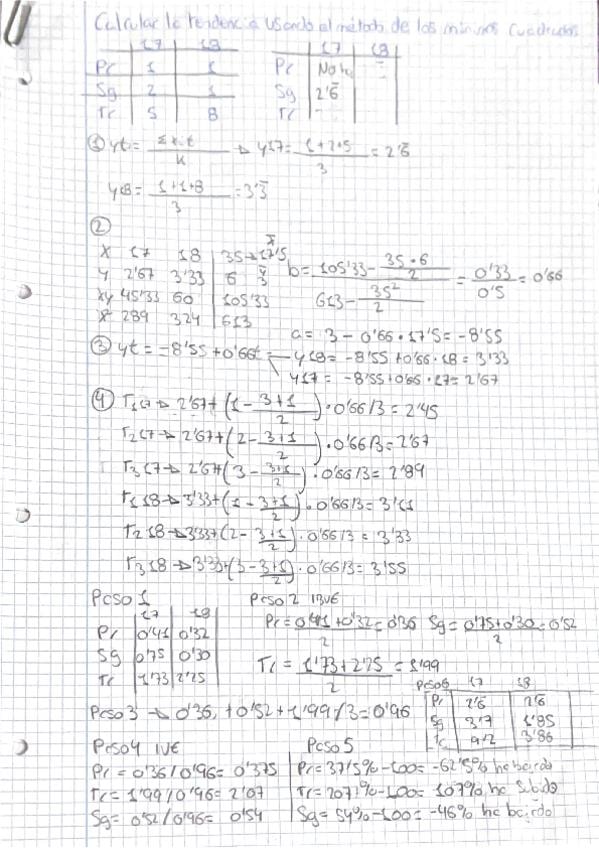 Calcular la tendencia usando el método de los mínimos cuadrados
17 18 17 18
Pr 1 1 Pr No ha -
Sg 2 1 Sg 2'6̄
Tr 5 8 Tr -
① yt = Σx·t / K → y17 = 1+2+5 / 3 = 2'6̄
y18 = 1+1+8 / 3 = 3'3̄
②
x 17 18 35 → x̄ 17'5
y 2'67 3'33 6 ȳ 3
xy 45'33 60 105'33
x² 289 324 613
b = 105'33 - 35·6/2 / 613 - 35²/2 = 0'33 / 0'5 = 0'66
a = 3 - 0'66 · 17'5 = -8'55
③ yt = -8'55 + 0'66t = y18 = -8'55 + 0'66 · 18 = 3'33
y17 = -8'55 + 0'66 · 17 = 2'67
④ T1 17 → 2'67 + (1 - 3+1/2) · 0'66/3 = 2'45
T2 17 → 2'67 + (2 - 3+1/2) · 0'66/3 = 2'67
T3 17 → 2'67 + (3 - 3+1/2) · 0'66/3 = 2'89
T1 18 → 3'33 + (1 - 3+1/2) · 0'66/3 = 3'11
T2 18 → 3'33 + (2 - 3+1/2) · 0'66/3 = 3'33
T3 18 → 3'33 + (3 - 3+1/2) · 0'66/3 = 3'55
Paso 1
17 18
Pr 0'41 0'32
Sg 0'75 0'30
Tr 1'73 2'25
Paso 2 IBVE
Pr = 0'41 + 0'32 / 2 = 0'36 Sg = 0'75 + 0'30 / 2 = 0'52
Tr = 1'73 + 2'25 / 2 = 1'99
Paso 3 → 0'36, + 0'52 + 1'99 / 3 = 0'96
Paso6 17 18
Pr 2'6 2'6
Sg 3'7 1'85
Tc 3'86
Paso4 IVE
Pr = 0'36 / 0'96 = 0'375
Tr = 1'99 / 0'96 = 2'07
Sg = 0'52 / 0'96 = 0'54
Paso 5
Pr = 37'5% - 100 = -62'5% ha bajado
Tr = 207% - 100 = 107% ha subido
Sg = 54% - 100 = -46% ha bajado